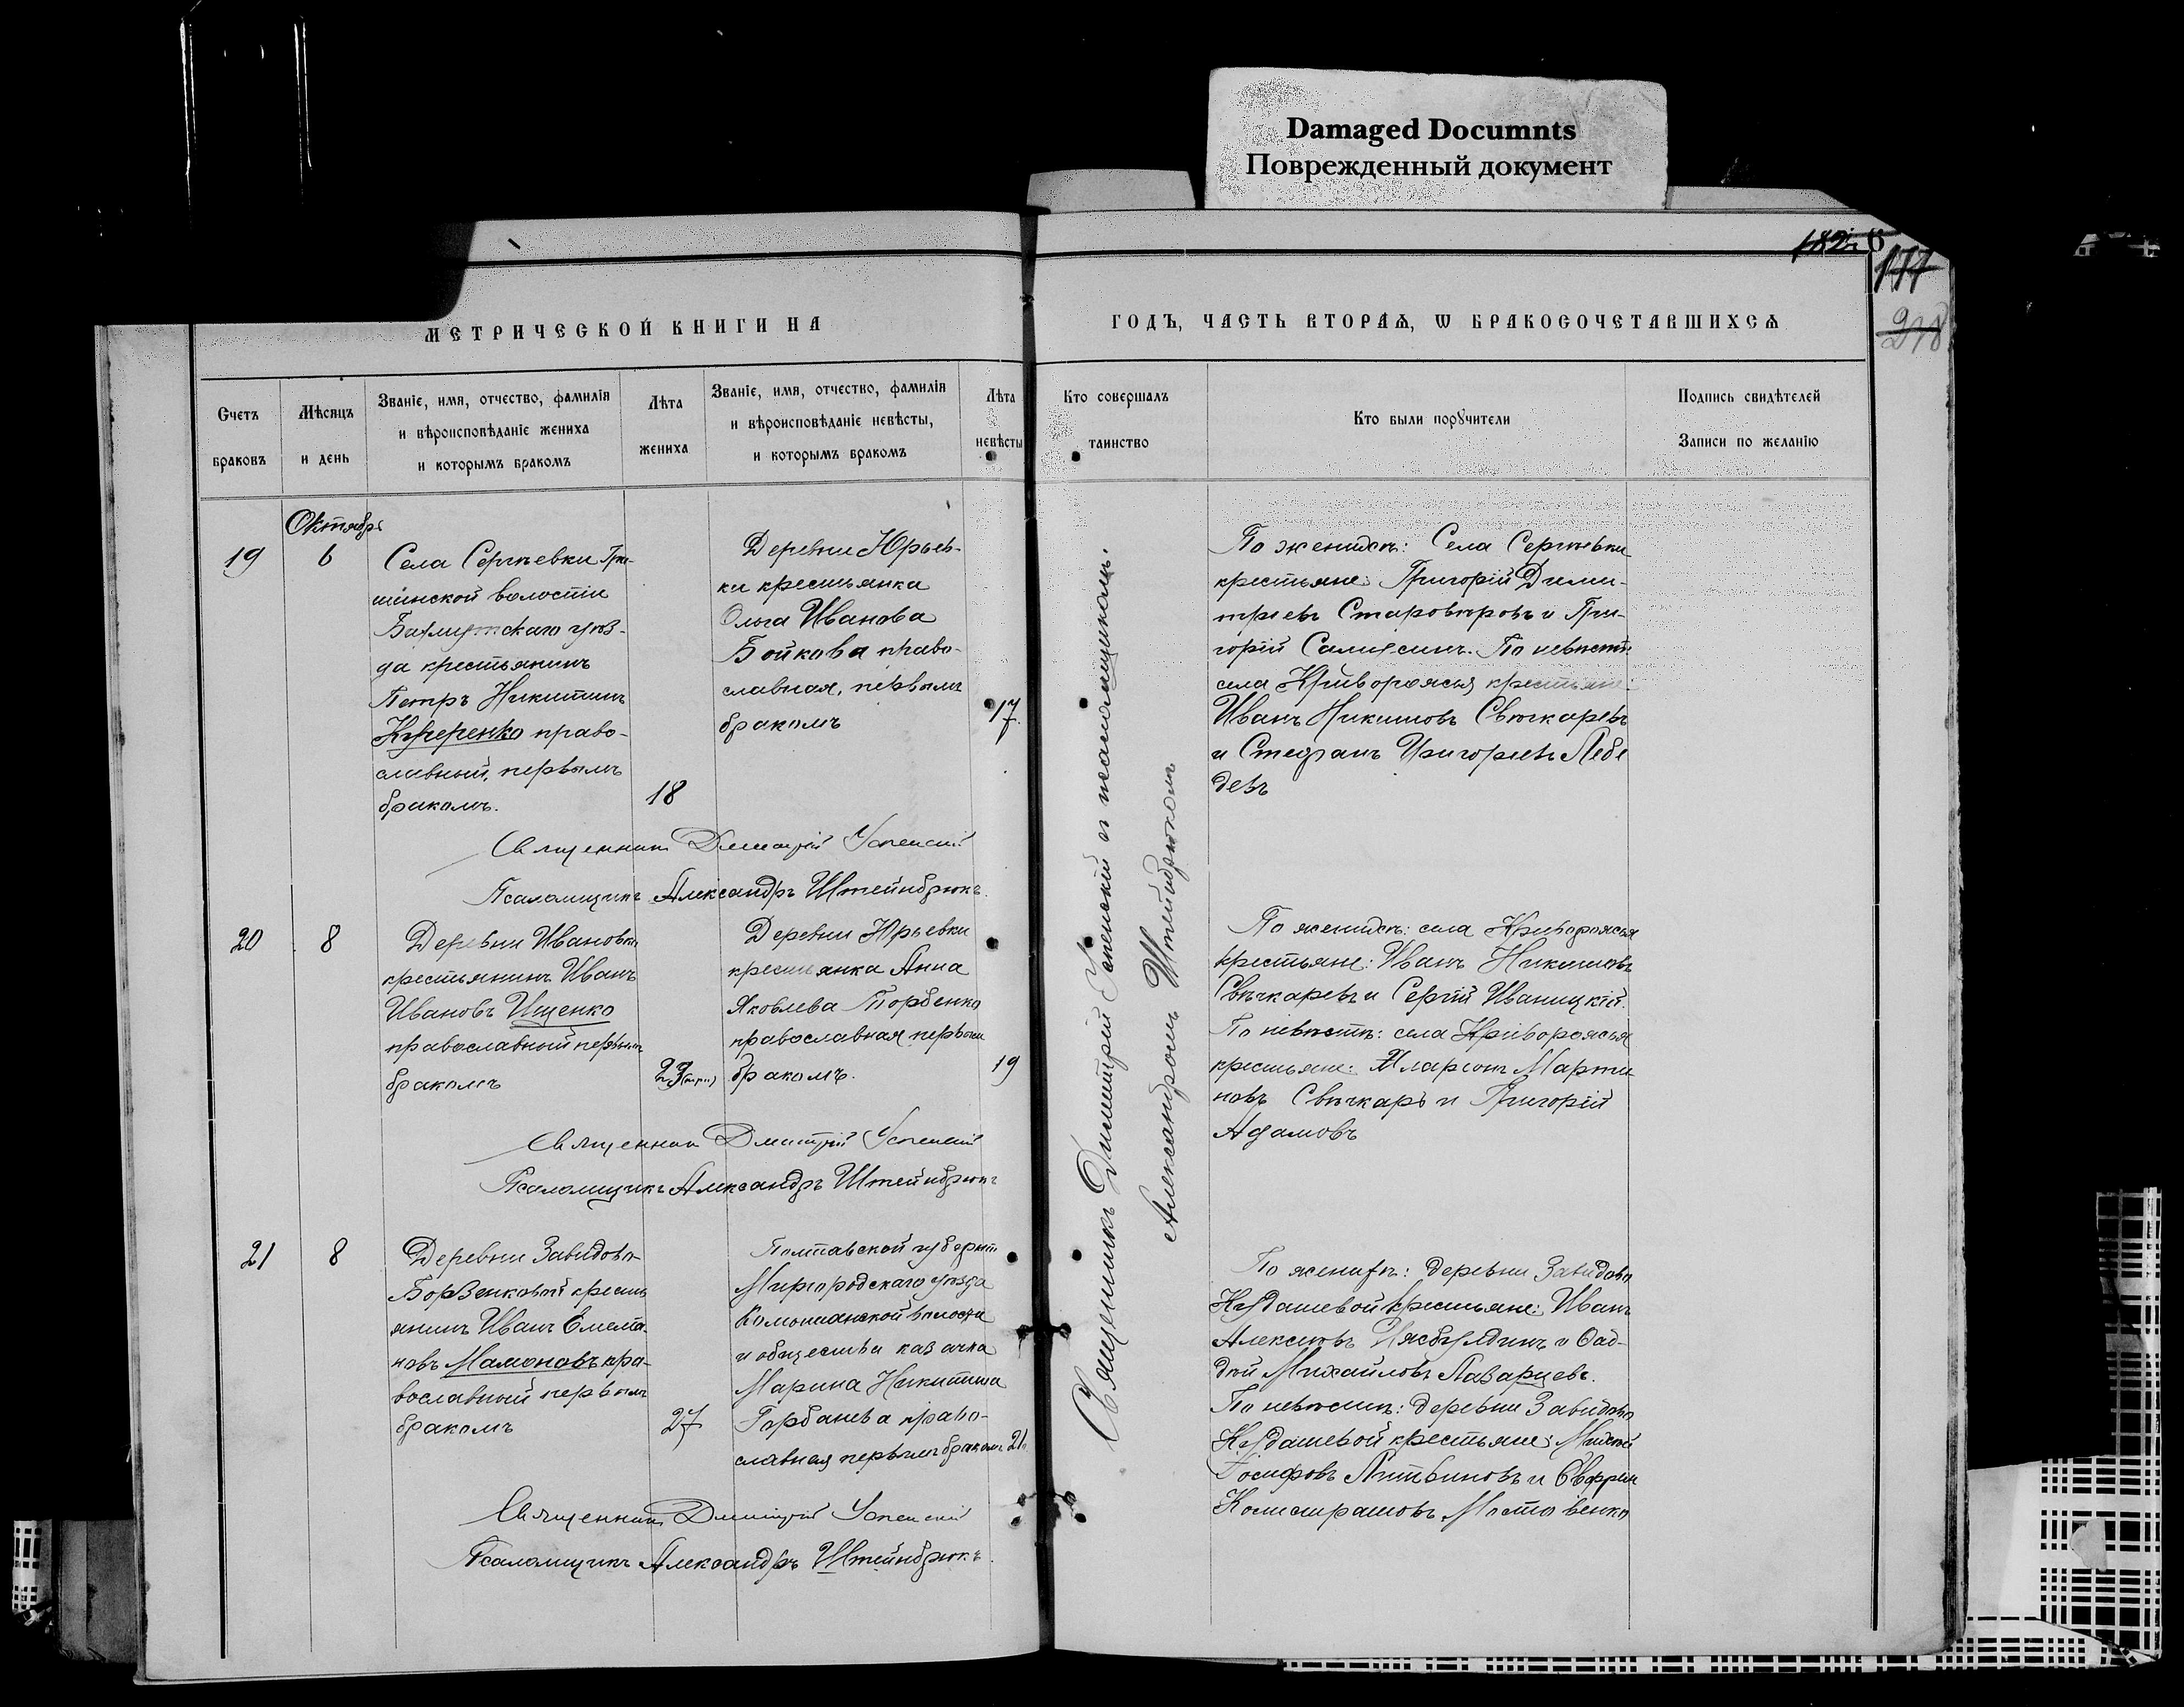 Damaged Documnts
Поврежденный документ
177
МЕТРИЧЕСКОЙ КНИГИ НА
ГОДЪ, ЧАСТЬ ВТОРАѦ, Ѡ БРАКОСОЧЕТАВШИХСѦ
Счетъ
браковъ
Мѣсяцъ
и день
Званіе, имя, отчество, фамилія
и вѣроисповѣданіе жениха
и которымъ бракомъ
Лѣта
жениха
Званіе, имя, отчество, фамилія
и вѣроисповѣданіе невѣсты,
и которымъ бракомъ
Лѣта
невѣсты
Кто совершалъ
таинство
Кто были порꙋчители
Подпись свидѣтелей
Записи по желанію
Октябрь
19
6
Села Сергѣевки Гри-
шинской волости
Бахмутскаго уѣз-
да крестьянинъ
Петръ Никитинъ
Кучеренко право-
славный, первымъ
бракомъ.
18
Деревни Юрьев-
ки крестьянка
Ольга Иванова
Бойкова право-
славная, первымъ
бракомъ
17
Священникъ Димитрій Успенскій и псаломщикомъ
Александромъ Штейнбрюкомъ
По женихѣ: Села Сергѣевки
крестьяне: Григорій Дими-
тріевъ Старовѣровъ и Гри-
горій. По невѣстѣ:
села Криворожья крестьяне:
Иванъ Никитовъ Свѣчкаревъ
и Стефанъ Григорьевъ Лебе
девъ
Священникъ Димитрій Успенскій
Псаломщикъ Александръ Штейнбрюкъ.
20
8
Деревни Ивановки
крестьянинъ Иванъ
Ивановъ Ищенко
православный первымъ
бракомъ
23
Деревни Юрьевки
крестьянка Анна
Яковлева Торбенко
православная первымъ
бракомъ.
19
По женихѣ: села Криворожья
крестьяне: Иванъ Никитовъ
Свѣчкаревъ и Сергій Иваницкій.
По невѣстѣ: села Криворожья
крестьяне: Иларіонъ Марти
новъ Свѣчкарь и Григорій
Адамовъ
Священникъ Димитрій Успенскій
Псаломщикъ Александръ Штейнбрюкъ
21
8
Деревни Завидово-
Борзенковой кресть
янинъ Иванъ Емелья-
новъ Мамоновъ пра-
вославный первымъ
бракомъ
27
Полтавской губерніи
Миргородскаго уѣзда
волости
и общества казачка
Марина Никитина
Горбанева право-
славная первымъ бракомъ
21
По женихѣ: деревни Завидово
Кудашевой крестьяне: Иванъ
Алексѣевъ и Фад-
дей Михайловъ Лазарцевъ.
По невѣстѣ: деревни Завидово
Кудашевой крестьяне:
Іосифовъ Литвиновъ и
Калистратовъ
Священникъ Димитрій Успенскій
Псаломщикъ Александръ Штейнбрюкъ.